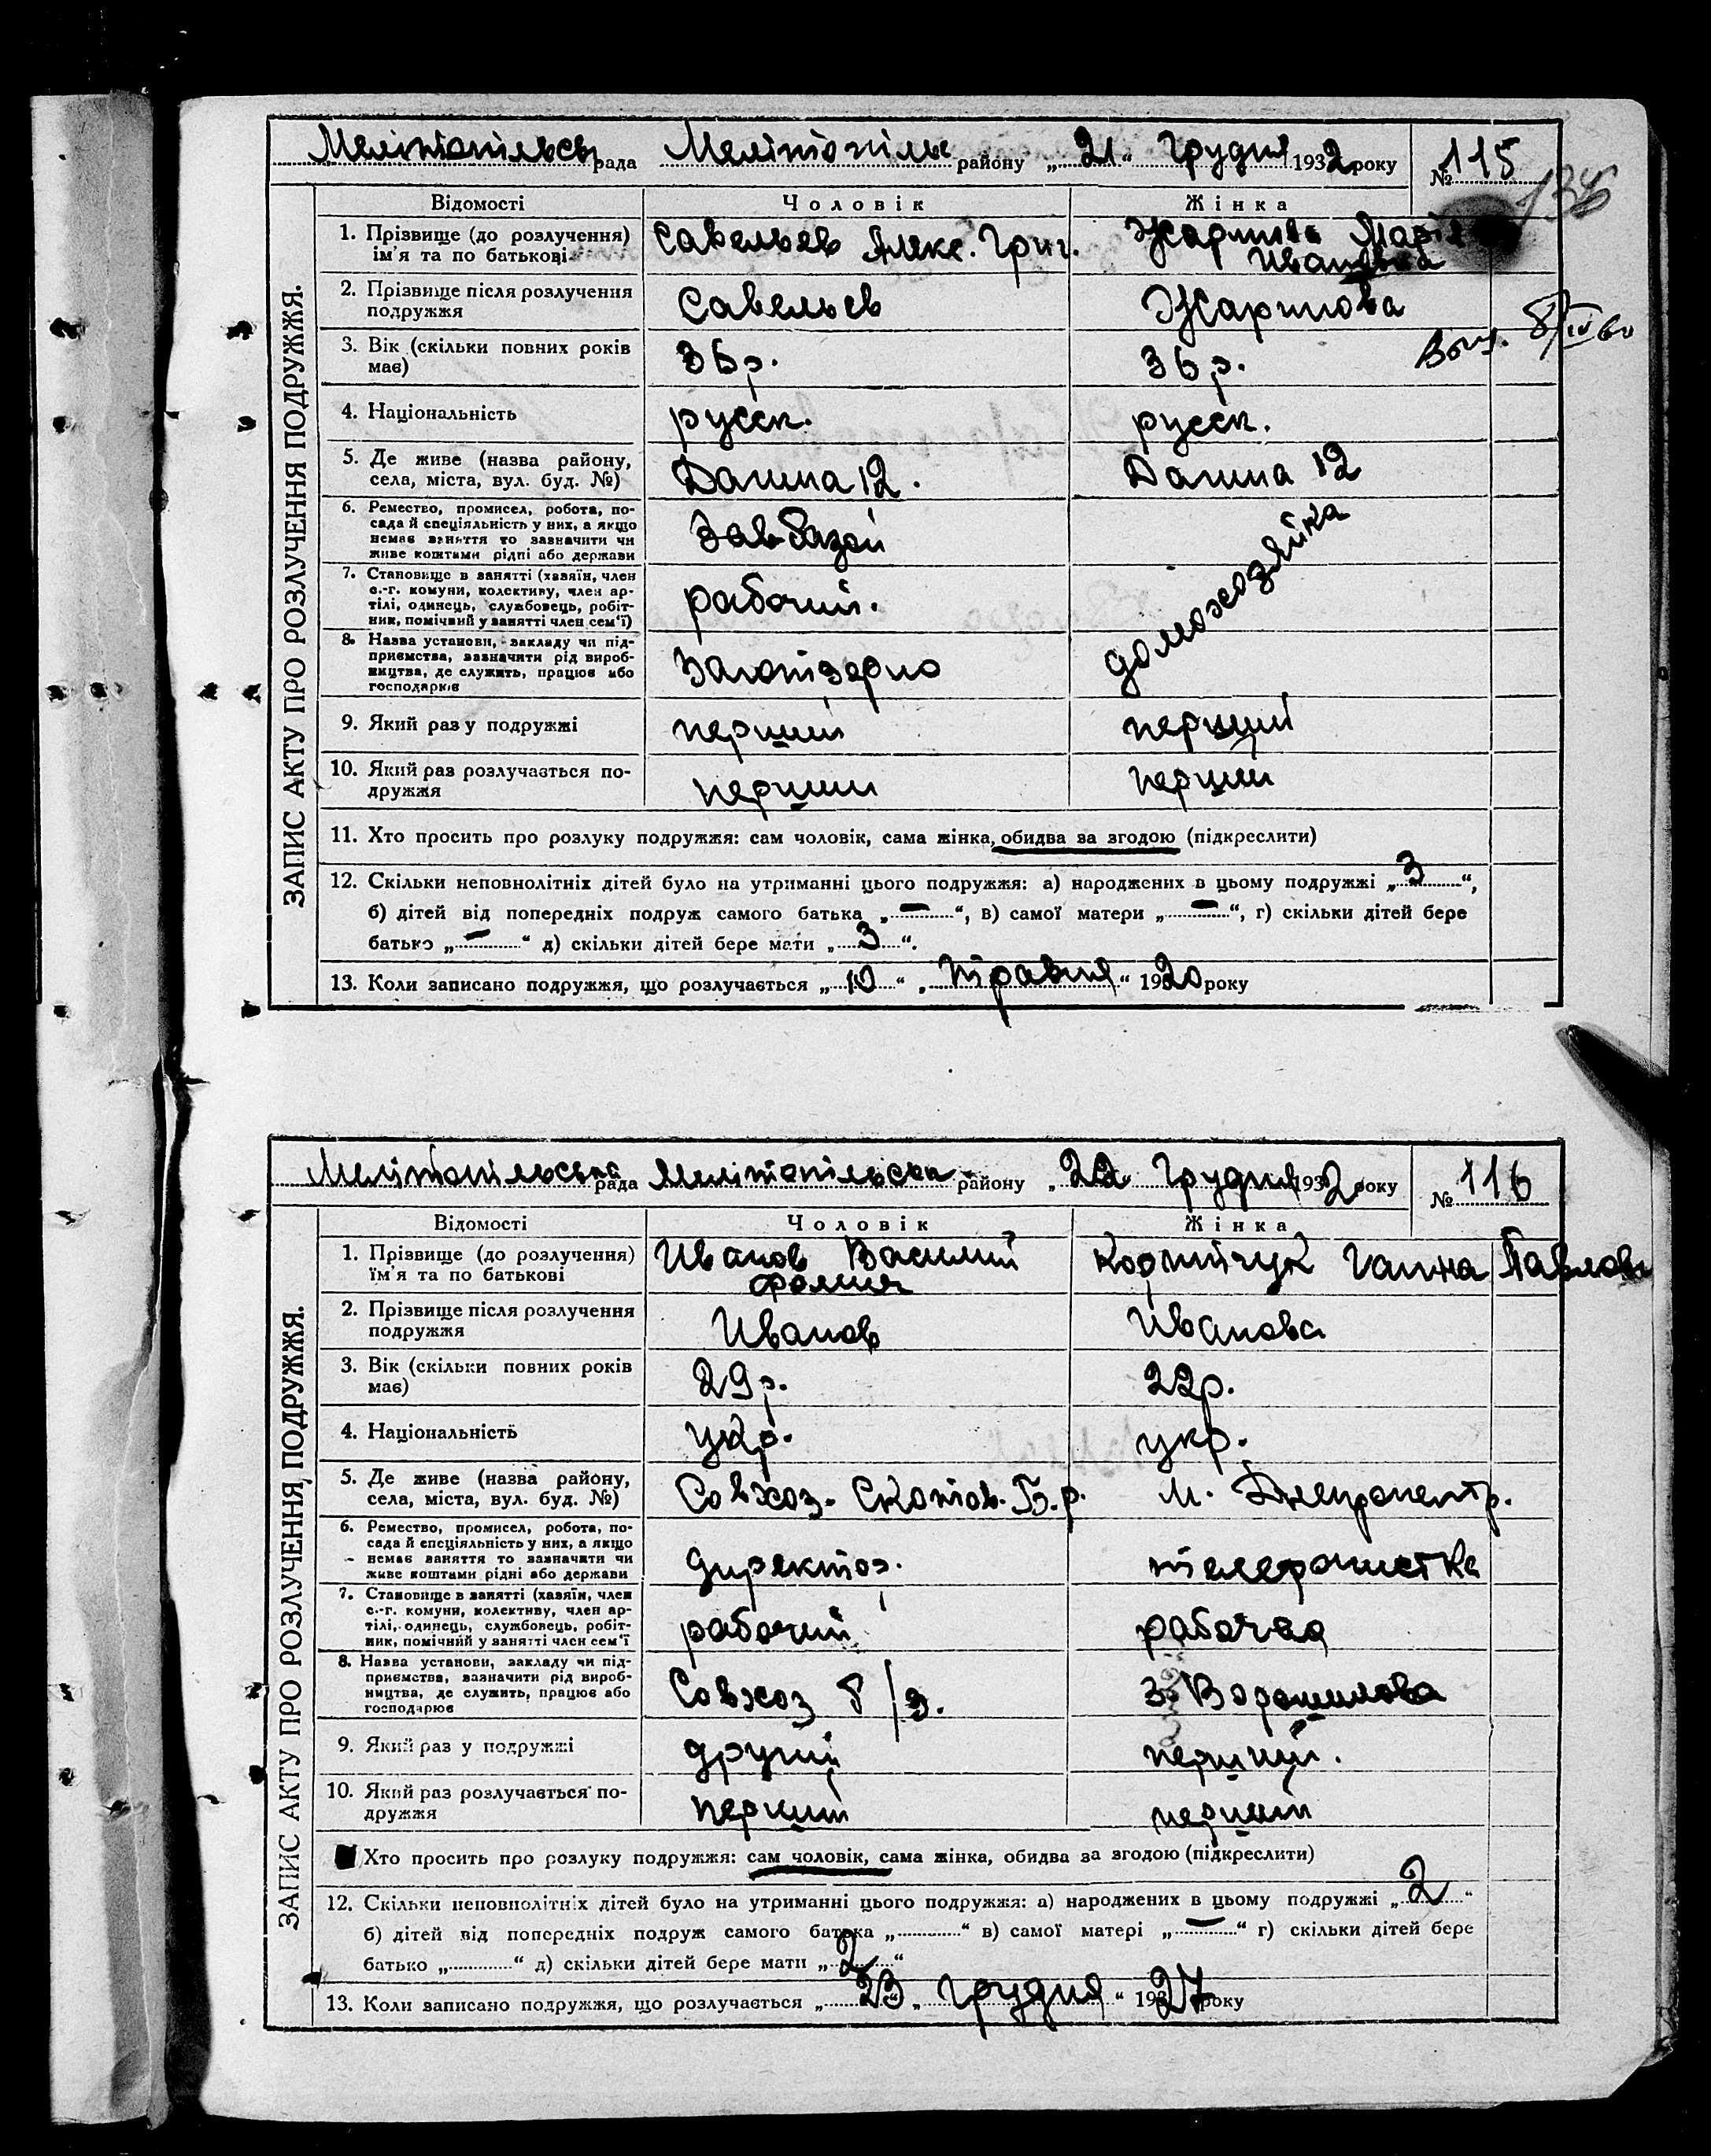 Мелітопільськ рада Мелітопільс району „21“ Грудня 1932 року № 115
136
Відомості Чоловік Жінка
1. Прізвище (до розлучення) ім'я та по батькові Савельев Алекс. Григ. Жаринова Марія
Ивановна
2. Прізвище після розлучення подружжя Савельев Жаринова
3. Вік (скільки повних років має) 36 р. 36 р.
8/IV 60
4. Національність русск. русск.
5. Де живе (назва району, села, міста, вул. буд. №) 12. 12
6. Ремество, промисел, робота, по-
сада й спеціяльність у них, а якщо
немає заняття то зазначити чи
живе коштами рідні або держави Завбазой
домохозяйка
7. Становище в занятті (хазяїн, член
с.-г. комуни, колективу, член ар-
тілі, одинець, службовець, робіт-
ник, помічний у занятті член сем'ї) рабочий.
8. Назва установи, закладу чи під-
приємства, зазначити рід вироб-
ництва, де служить, працює або
господарює Заготзерно
9. Який раз у подружжі перший перший
10. Який раз розлучається по-
дружжя перший перший
11. Хто просить про розлуку подружжя: сам чоловік, сама жінка, обидва за згодою (підкреслити)
12. Скільки неповнолітніх дітей було на утриманні цього подружжя: а) народжених в цьому подружжі „3“,
б) дітей від попередніх подруж самого батька „—“, в) самої матери „—“, г) скільки дітей бере
батько „—“ д) скільки дітей бере мати „3“.
13. Коли записано подружжя, що розлучається „10“ „Травня“ 1920 року
ЗАПИС АКТУ ПРО РОЗЛУЧЕННЯ ПОДРУЖЖЯ.
Мелітопільська рада Мелітопільськ району „22 Грудня 1932 року № 116
Відомості Чоловік Жінка
1. Прізвище (до розлучення) їм'я та по батькові Иванов Василий Ганна Павлов
Фомич
2. Прізвище після розлучення подружжя Иванов Иванова
3. Вік (скільки повних років має) 29 р. 22 р.
4. Національність укр. укр.
5. Де живе (назва району, села, міста, вул. буд. №) Совхоз. Скотов. Б. р. м. Днепропетр.
6. Ремество, промисел, робота, по-
сада й спеціяльність у них, а якщо
немає заняття то зазначити чи
живе коштами рідні або держави директор. телефонистка
7. Становище в занятті (хазяїн, член
с.-г. комуни, колективу, член ар-
тілі, одинець, службовець, робіт-
ник, помічний у занятті член сем'ї рабочий рабочая
8. Назва установи, закладу чи під-
приємства, зазначити рід вироб-
ництва, де служить, працює або
господарює Совхоз з. Ворошилова
9. Який раз у подружжі другий перший.
10. Який раз розлучається по-
дружжя перший перший
Хто просить про розлуку подружжя: сам чоловік, сама жінка, обидва за згодою (підкреслити)
12. Скільки неповнолітніх дітей було на утриманні цього подружжя: а) народжених в цьому подружжі „2“
б) дітей від попередніх подруж самого батька „.....“ в) самої матері „—“ г) скільки дітей бере
батько „.....“ д) скільки дітей бере мати „2“
13. Коли записано подружжя, що розлучається „23„ Грудня“ 1927 року
ЗАПИС АКТУ ПРО РОЗЛУЧЕННЯ ПОДРУЖЖЯ.